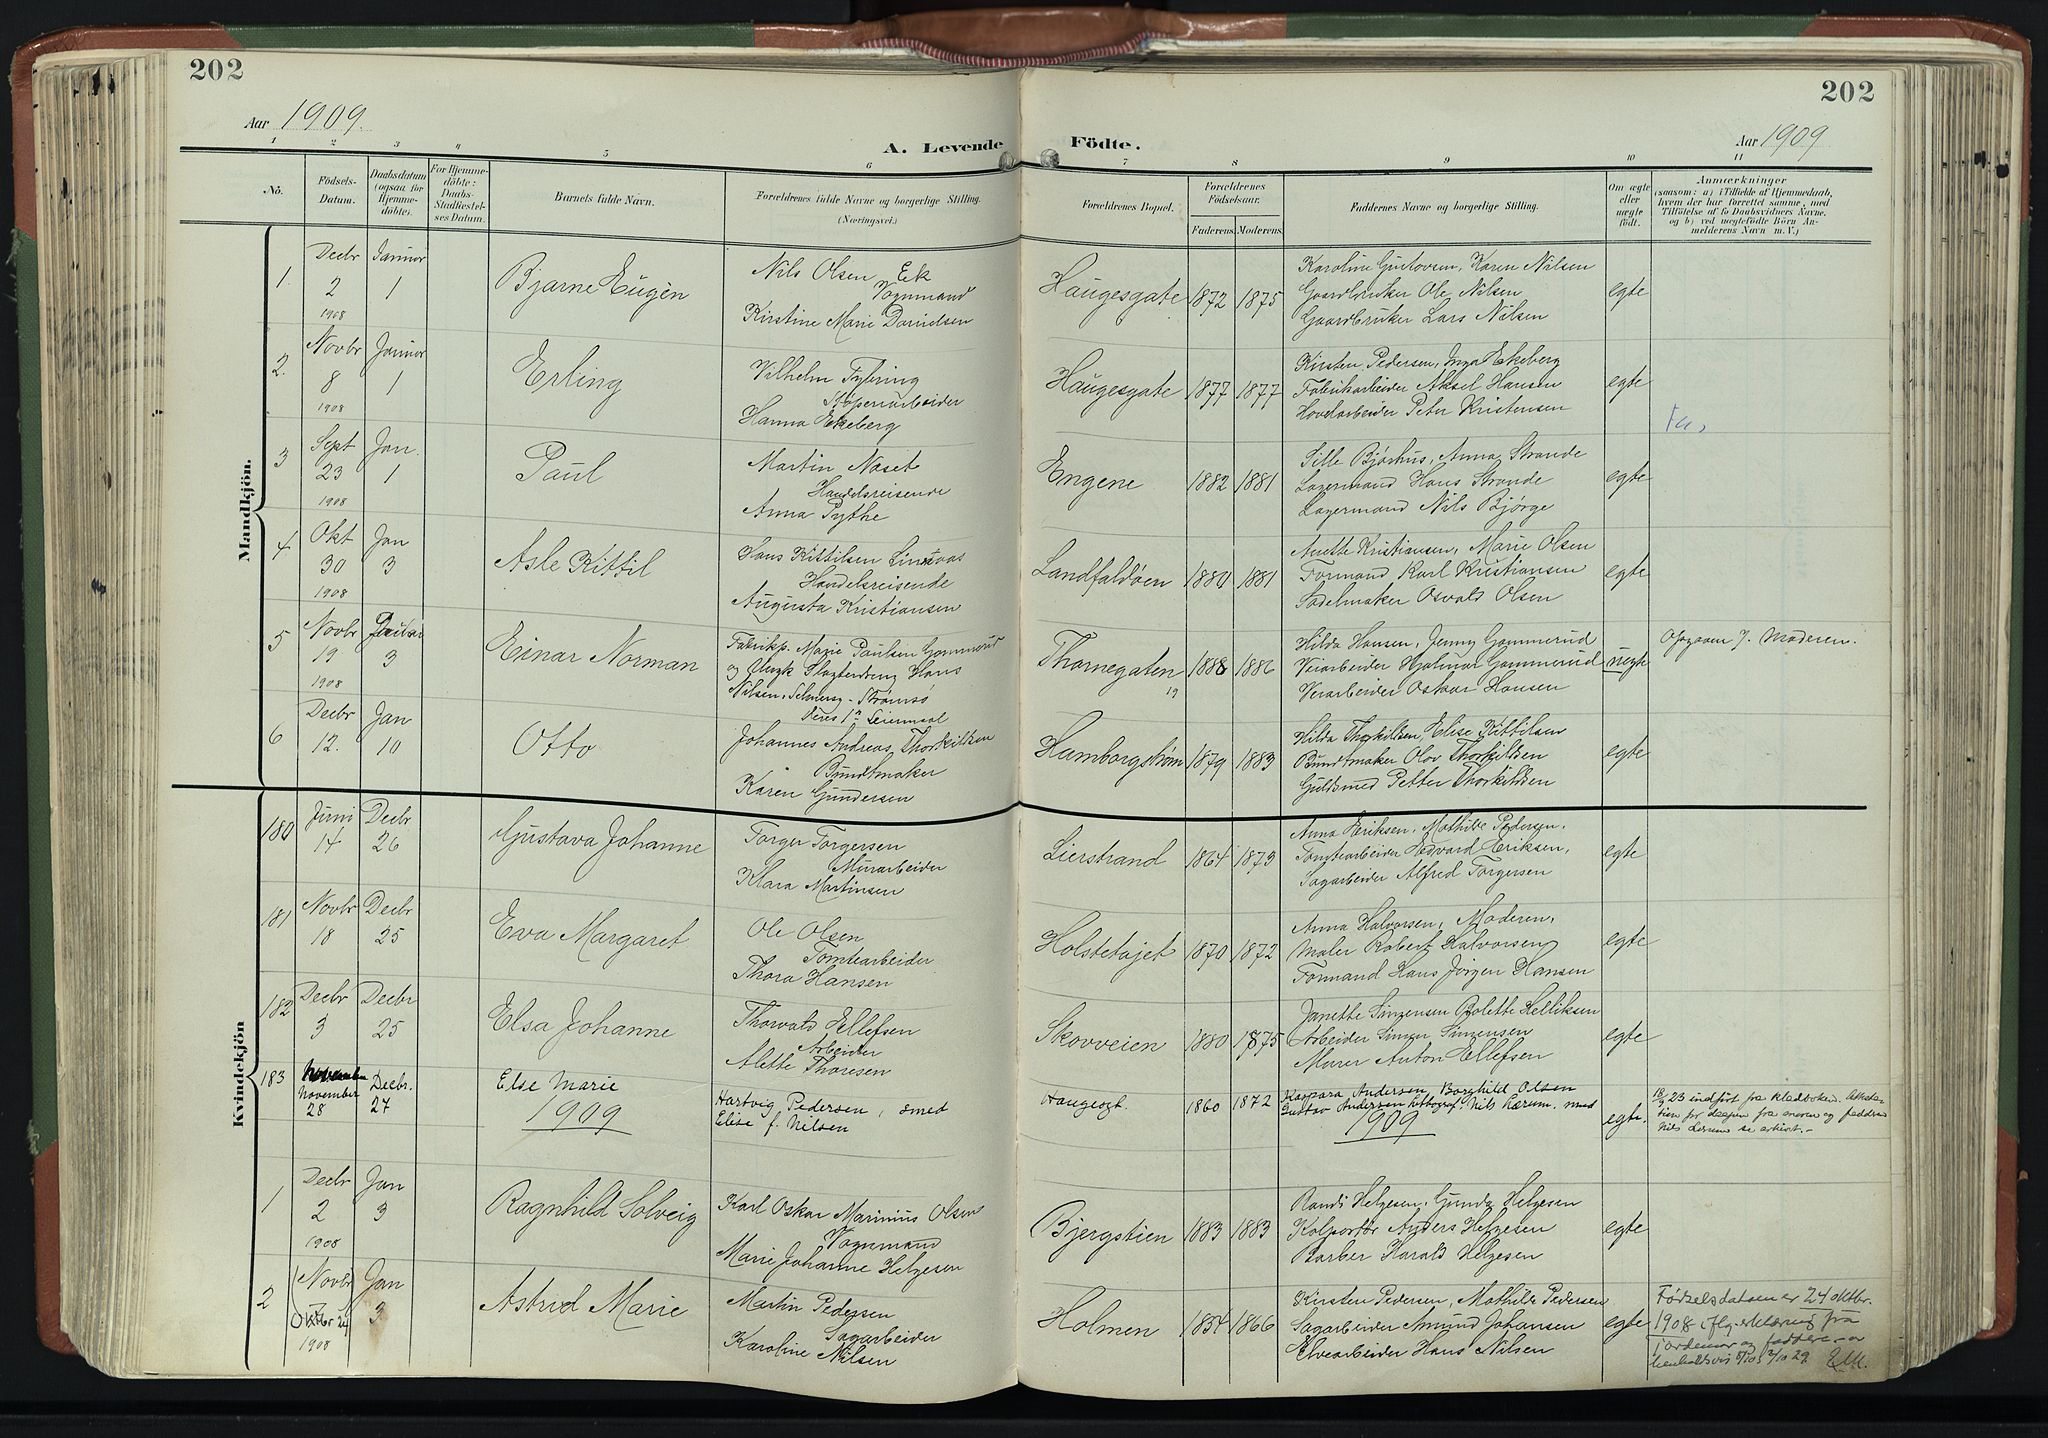 202
202
Aar 1909.
A. Levende Födte.
Aar 1909
1 2 3 4 5 6 7 8 9 10 11
Nö.
Födsels-Datum.
Daabsdatum (ogsaa for Hjemmedöbte).
For Hjemmedöbte: Daabs-Stadfæstelses Datum.
Barnets fulde Navn.
Forældrenes fulde Navne og borgerlige Stilling. (Næringsvei.)
Forældrenes Bopæl.
Forældrenes Födselsaar.
Faderens. Moderens.
Faddernes Navne og borgerlige Stilling.
Om ægte eller uægte födt.
Anmærkninger
(saasom: a) i Tilfælde af Hjemmedaab, hvem der har forrettet samme, med Tilföielse af to Daabsvidners Navne, og b) ved uægtefödte Börn Anmelderens Navn m. V.)
Mandkjön.
1. Decbr 2 1908
Januar 1
Bjarne Eugén
Nils Olsen Eek
Vognmand
Kirstine Marie Danielsen
Haugesgate 1872 1875
Karoline Gustavsen, Karen Nilsen
Gaardbruker Ole Nilsen
Gaardbruker Lars Nilsen
egte
2. Novbr 8 1908
Januar 1
Erling
Vilhelm Tybring
Støperiarbeider
Hanna Ekeberg
Haugesgate 1877 1877
Kirsten Pedersen, Inga Ekeberg
Fabrikarbeider Aksel Hansen
Hovelarbeider Peter Kristensen
egte
3 Sept 23 1908
Jan. 1
Paul
Martin Næset
Handelsreisende
Anna Pythe
Engene 1882 1881
Sille Bjørhus, Anna Strande
Lagermand Hans Strande
Lagermand Nils Bjørge
egte
4 Okt 30 1908
Jan 3
Asle Kittil
Hans Kittilsen
Handelsreisende
Augusta Kristiansen
Landfaldøen 1880 1881
Anette Kristiansen, Marie Olsen
Formand Karl Kristiansen
Sadelmaker Osvald Olsen
egte
5 Novbr 19 1908
3
Einar Norman
Fabrikp. Marie Paulsen Gommerud
og Ungk Slagterdreng Hans
Nilsen, Selmersg - Strømsø
Deres 1ste Leiermaal
Thornegaten 19 1888 1886
Hilda Hansen, Jenny Gommerud
Veiarbeider Hjalmar Gommerud
Veiarbeider Oskar Hansen
uegte
Opgaven f. Moderen.
6 Decbr 12.
Jan 10
Otto
Johannes Andreas Thorkildsen
Bundtmaker
Karen Gundersen
Hamborgstrøm 1879 1883
Hilda Thorkildsen, Elise Kittilsen
Bundtmaker Olov Thorkildsen
Guldsmed Petter Thorkildsen
egte
Kvindekjön
180 Juni 14
Decbr 26
Gustava Johanne
Torger Torgersen
Murarbeider
Klara Martinsen
Lierstrand 1864 1873
Anna Eriksen, Mathilde Pedersen.
Tomtearbeider Edvard Eriksen,
Sagarbeider Alfred Torgersen
egte
181 Novbr 18
Decbr 25
Eva Margaret
Ole Olsen
Tomtearbeider
Thora Hansen
Holstetøjet 1870 1872
Anna Halvorsen, Moderen,
Maler Robert Halvorsen
Formand Hans Jörgen Hansen
egte
182 Decbr 3
Decbr 25
Elsa Johanne
Thorvald Ellefsen
Arbeider
Alette Thoresen
Skovveien 1880 1875
Janette Simensen Bolette Helliksen
Arbeider Simen Simensen
Murer Anton Ellefsen
egte
183 November
November 28
Decbr. 27
Else Marie
Hartvig Pedersen, smed
Elise f. Nilsen
Haugesgt. 1860 1872
Kaspara Andersen, Borghild Olsen
Gustav Andersen Nils Lærum, smed
egte.
18/3 23 indført fra kladboken.
1909
1909
1 Decbr 2 1908
Jan 3
Ragnhild Solveig
Karl Oskar Marinius Olsen
Vognmand
Marie Johanne Helgesen
Bjergstien 1883 1883
Randi Helgesen, Gunda Helgesen
Kolportør Anders Helgesen
Barber Harald Helgesen
egte
2 Novbr
Oktbr 24 1908
Jan 3
Astrid Marie
Martin Pedersen
Sagarbeider
Karoline Nilsen
Holmen 1854 1866
Kirsten Pedersen, Mathilde Pedersen
Sagarbeider Amund Johansen
Elvearbeider Hans Nilsen
egte
Fødselsdatoen er 24 oktbr.
1908 iflg. erklæring fra
jordemor og faddere